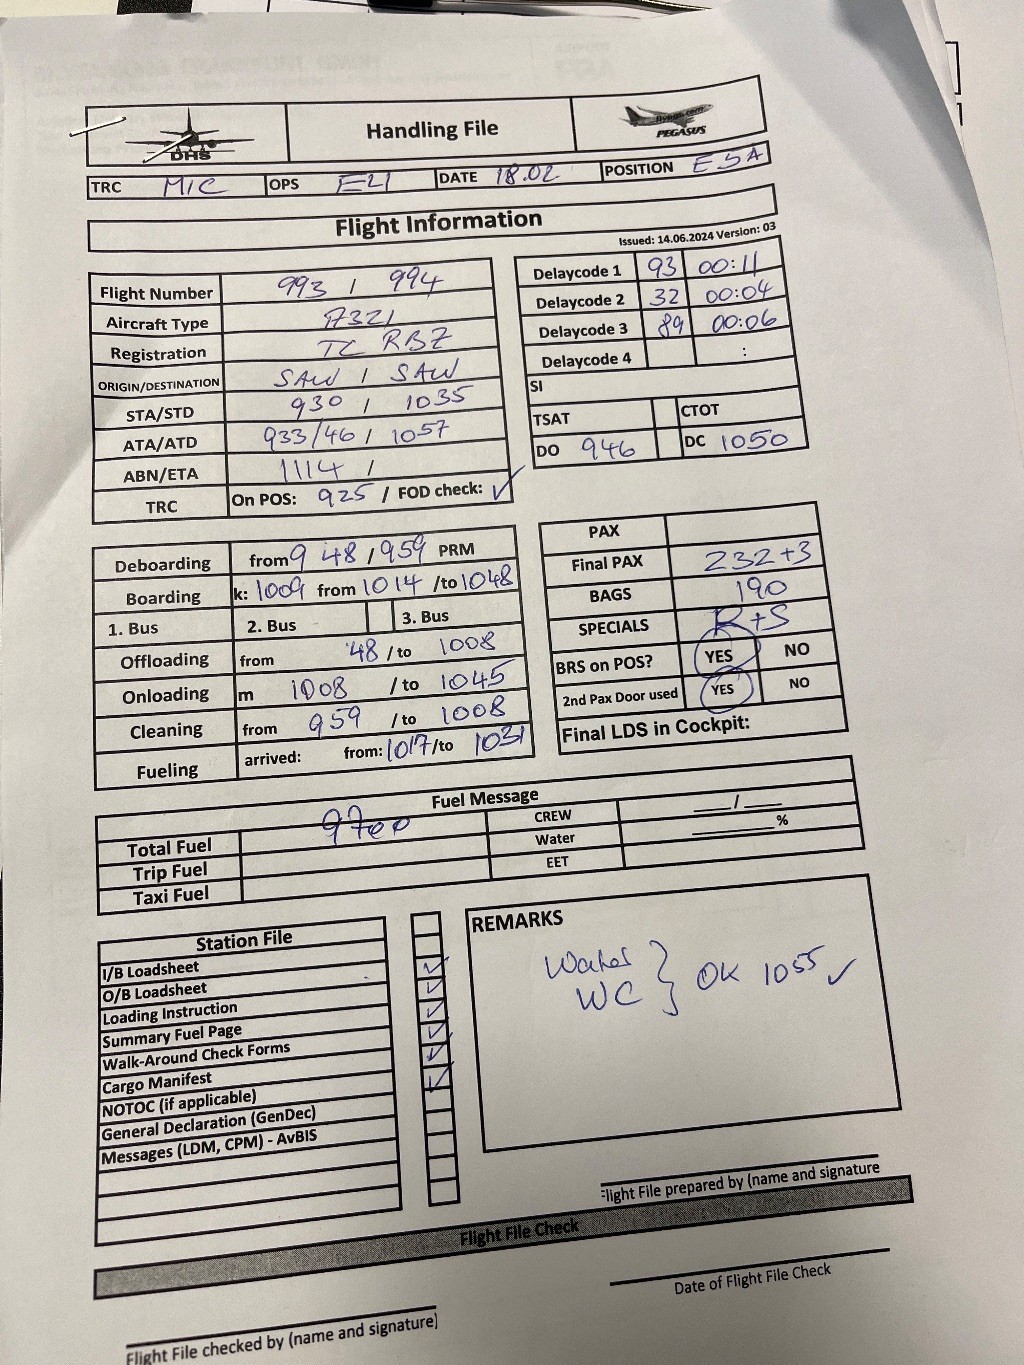 DHS
Handling File
flypgs.com
PEGASUS
TRC MIC OPS ELI DATE 18.02 POSITION E5A
Flight Information
Issued: 14.06.2024 Version: 03
Flight Number 993 / 994
Aircraft Type A321
Registration TC RBZ
ORIGIN/DESTINATION SAW / SAW
STA/STD 930 / 1035
ATA/ATD 933/46 / 1057
ABN/ETA 1114 /
TRC On POS: 925 / FOD check: ✓
Delaycode 1 93 00:11
Delaycode 2 32 00:04
Delaycode 3 89 00:06
Delaycode 4 :
SI
TSAT CTOT
DO 946 DC 1050
Deboarding from 948 / 959 PRM
Boarding k: 1009 from 1014 /to 1048
1. Bus 2. Bus 3. Bus
Offloading from 48 / to 1008
Onloading m 1008 / to 1045
Cleaning from 959 / to 1008
Fueling arrived: from: 1017 /to 1031
PAX
Final PAX 232+3
BAGS 190
SPECIALS R+S
BRS on POS? YES NO
2nd Pax Door used YES NO
Final LDS in Cockpit:
Fuel Message
Total Fuel 9700 CREW ___/___
Trip Fuel Water ______%
Taxi Fuel EET
Station File
I/B Loadsheet
O/B Loadsheet
Loading Instruction
Summary Fuel Page
Walk-Around Check Forms
Cargo Manifest
NOTOC (if applicable)
General Declaration (GenDec)
Messages (LDM, CPM) - AvBIS
REMARKS
Water
WC } OK 1055 ✓
Flight File prepared by (name and signature
Flight File Check
Date of Flight File Check
Flight File checked by (name and signature)